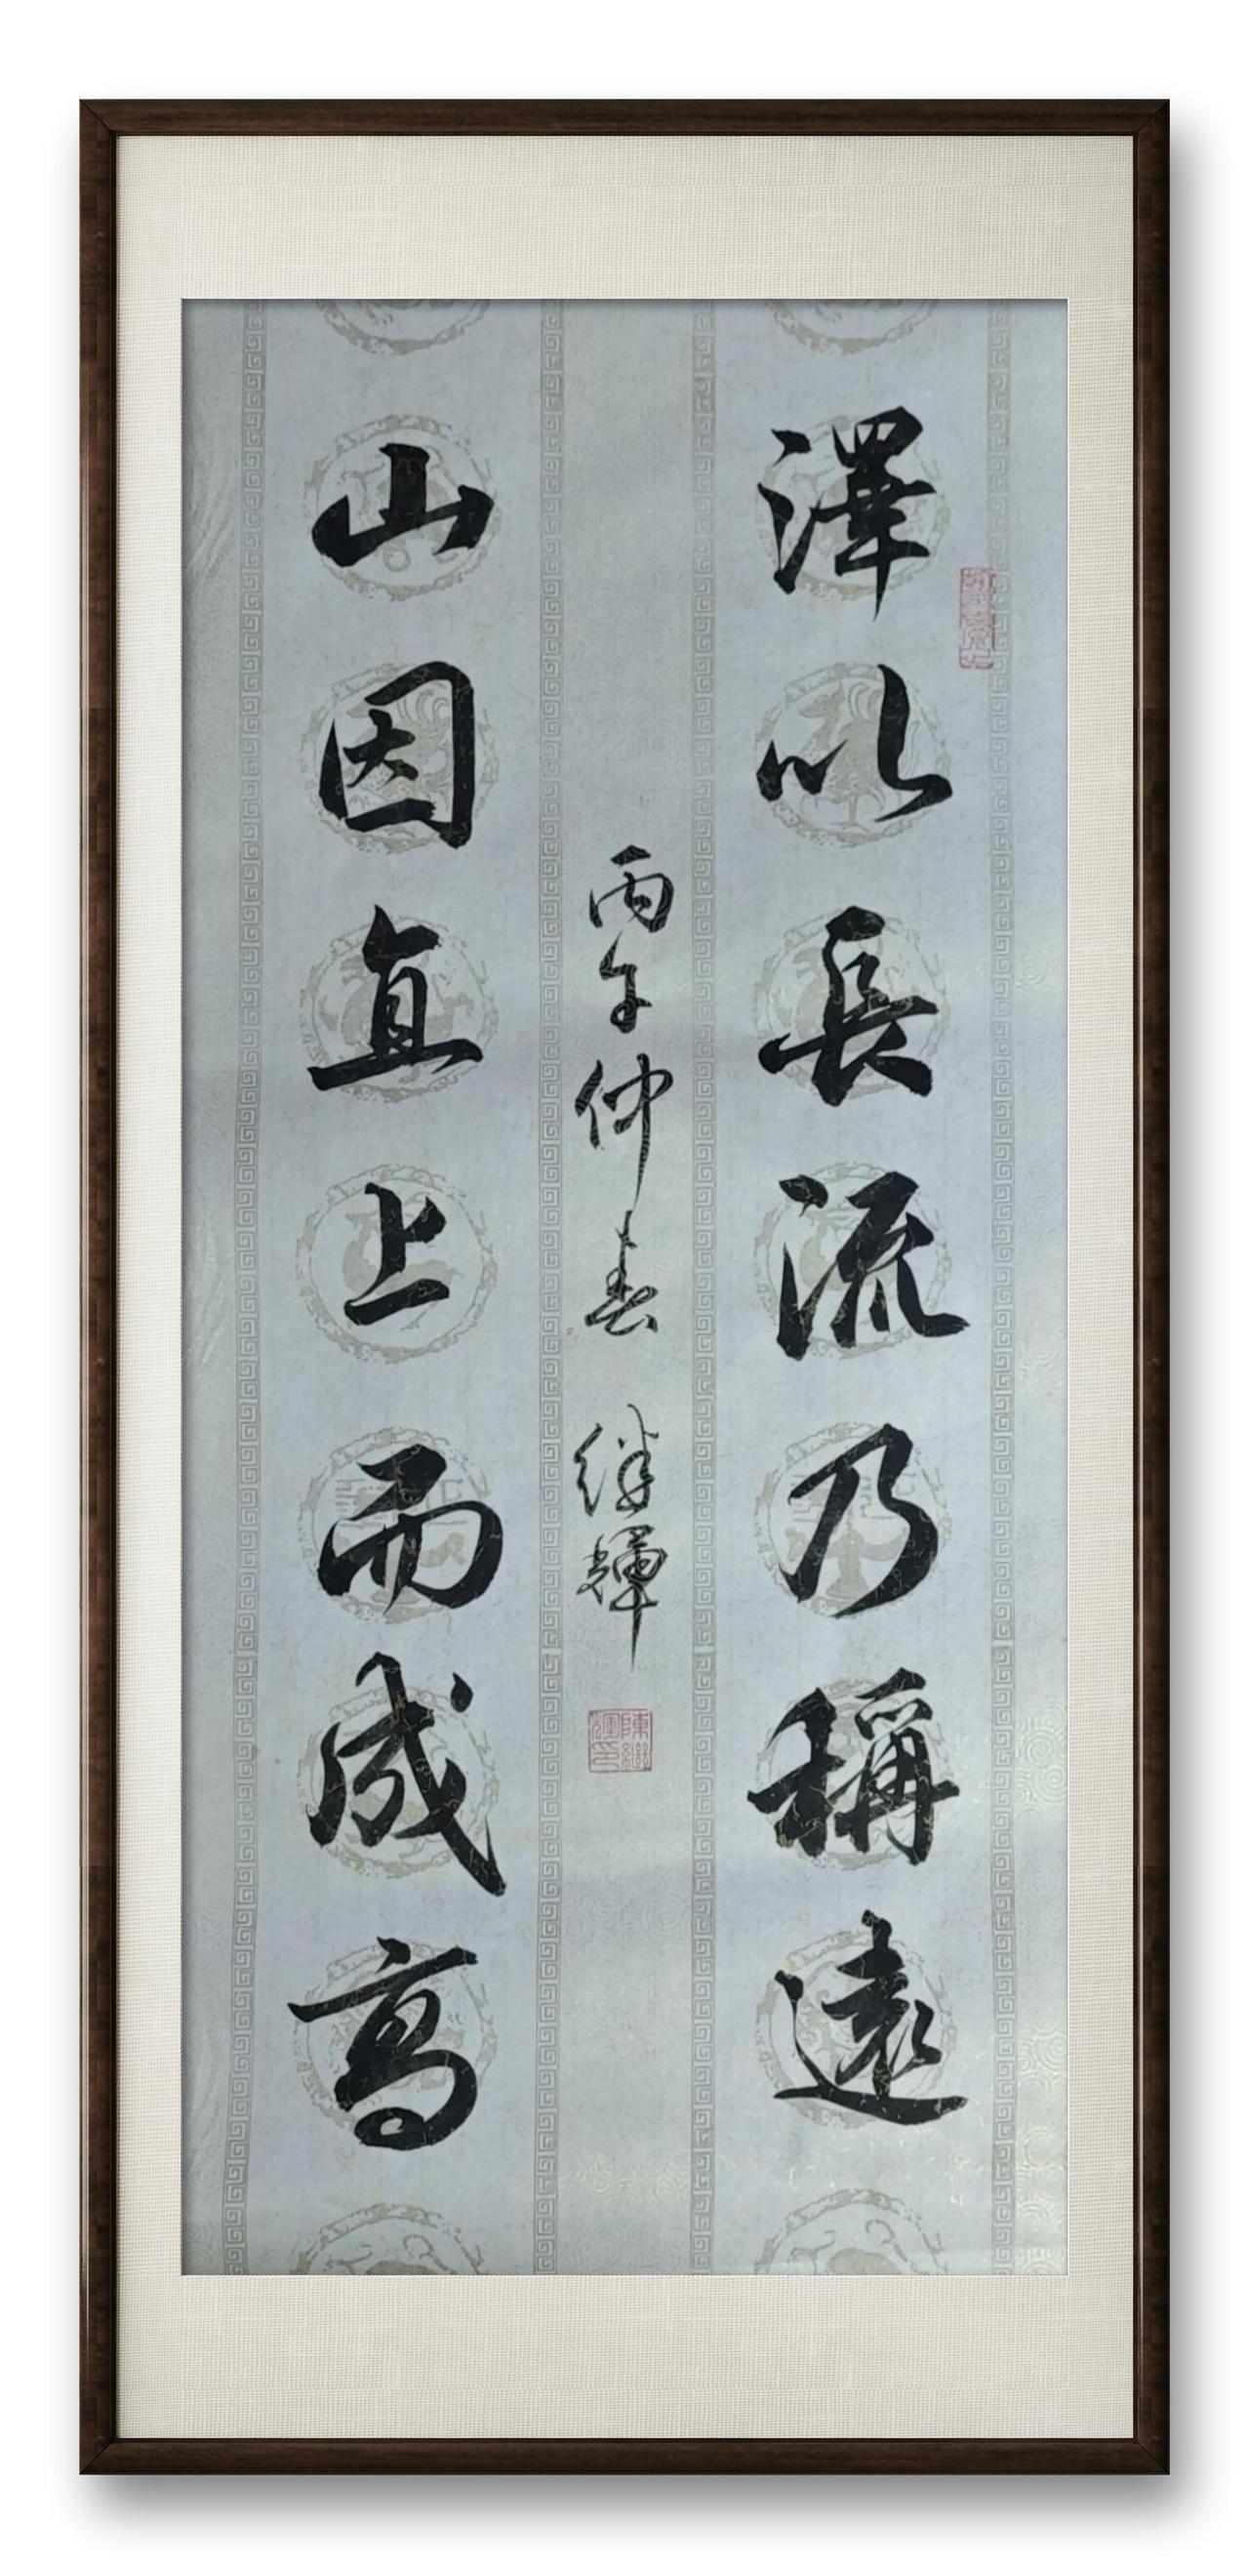 澤以長流乃稱遠
山因直上而成高
丙午仲春 继輝
陳繼輝印